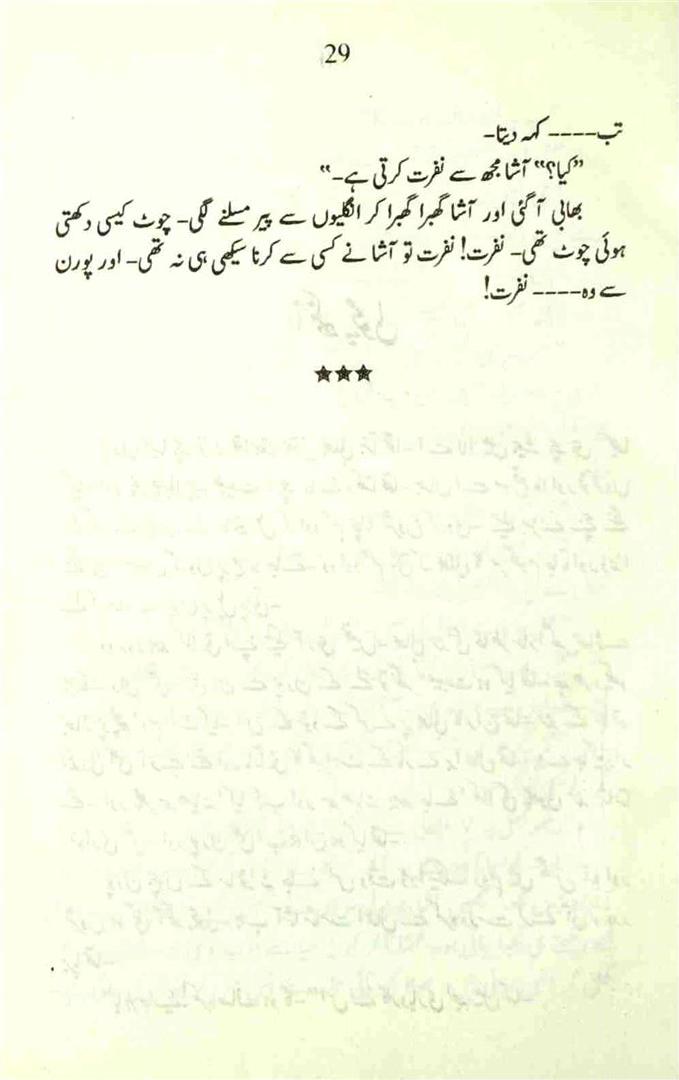 29
تب---- کہہ دیتا-
"کیا؟" آشا مجھ سے نفرت کرتی ہے-"
بھابی آ گئی اور آشا گھبرا گھبرا کر انگلیوں سے پیر مسلنے لگی- چوٹ کیسی دکھتی
ہوئی چوٹ تھی- نفرت! نفرت تو آشا نے کسی سے کرنا سیکھی ہی نہ تھی- اور پورن
سے وہ---- نفرت!
★★★